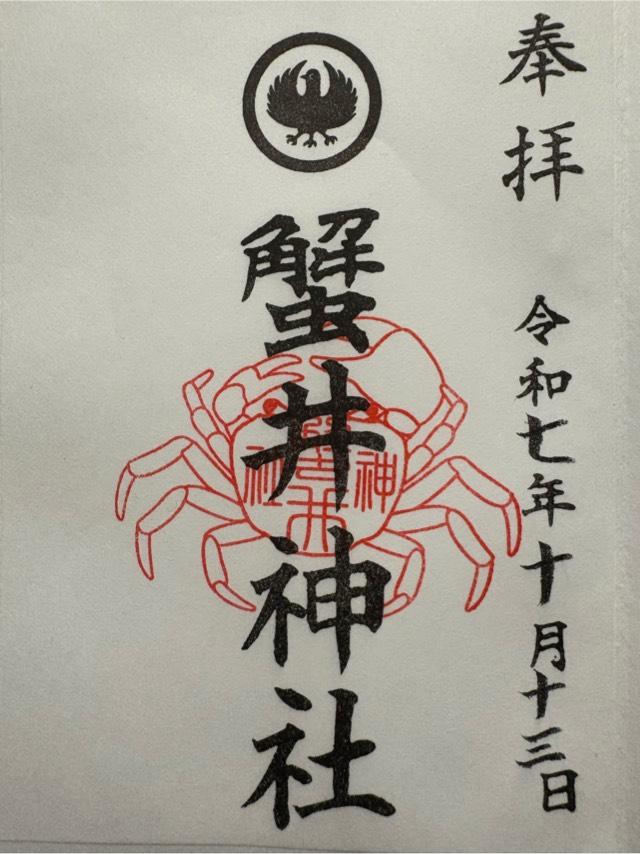 奉拝
令和七年十月十三日
蟹井神社
蟹井
神社